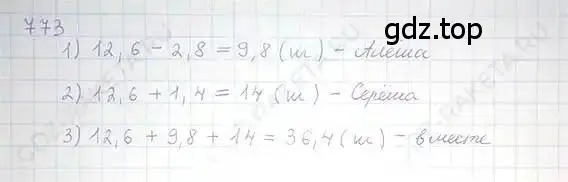 773
gdz.top
1) 12,6 - 2,8 = 9,8 (т) - Алёша
2) 12,6 + 1,4 = 14 (т) - Серёжа
3) 12,6 + 9,8 + 14 = 36,4 (т) - вместе